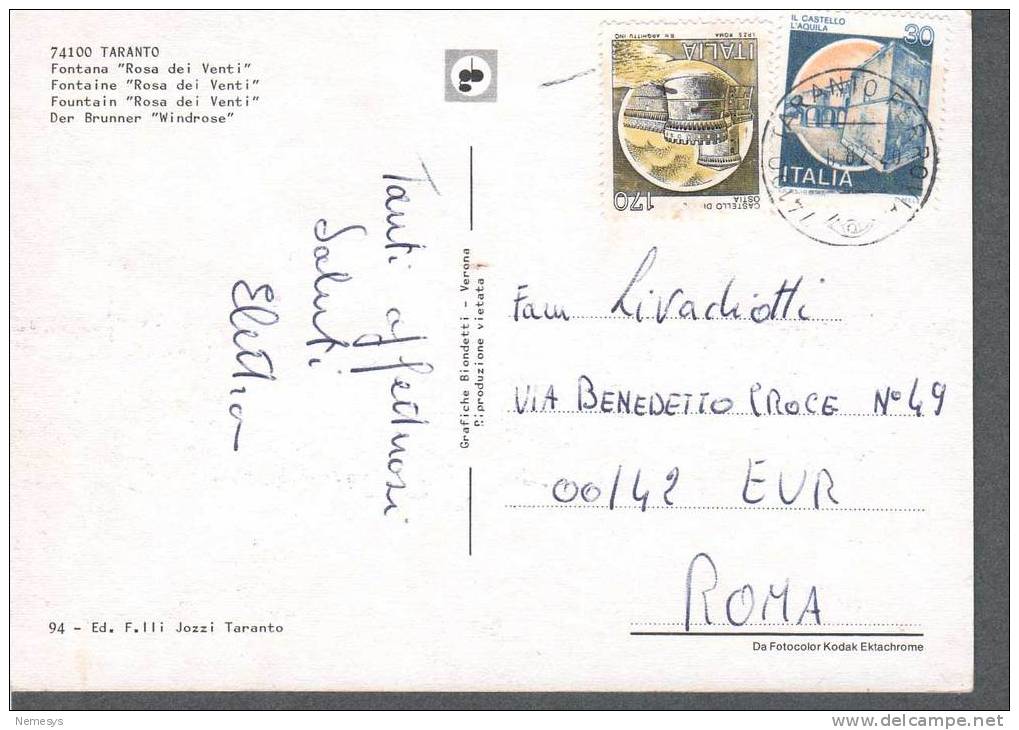 74100 TARANTO
Fontana "Rosa dei Venti"
Fontaine "Rosa dei Venti"
Fountain "Rosa dei Venti"
Der Brunner "Windrose"
ITALIA
CASTELLO DI
OSTIA
170
IL CASTELLO
L'AQUILA
30
ITALIA
TARANTO FERROVIA
Tanti affettuosi
Saluti
Grafiche Biondetti - Verona
Riproduzione vietata
Fam Livachiotti
VIA BENEDETTO CROCE N° 49
00142 EUR
ROMA
94 - Ed. F.lli Jozzi Taranto
Da Fotocolor Kodak Ektachrome
Nemesys
www.delcampe.net